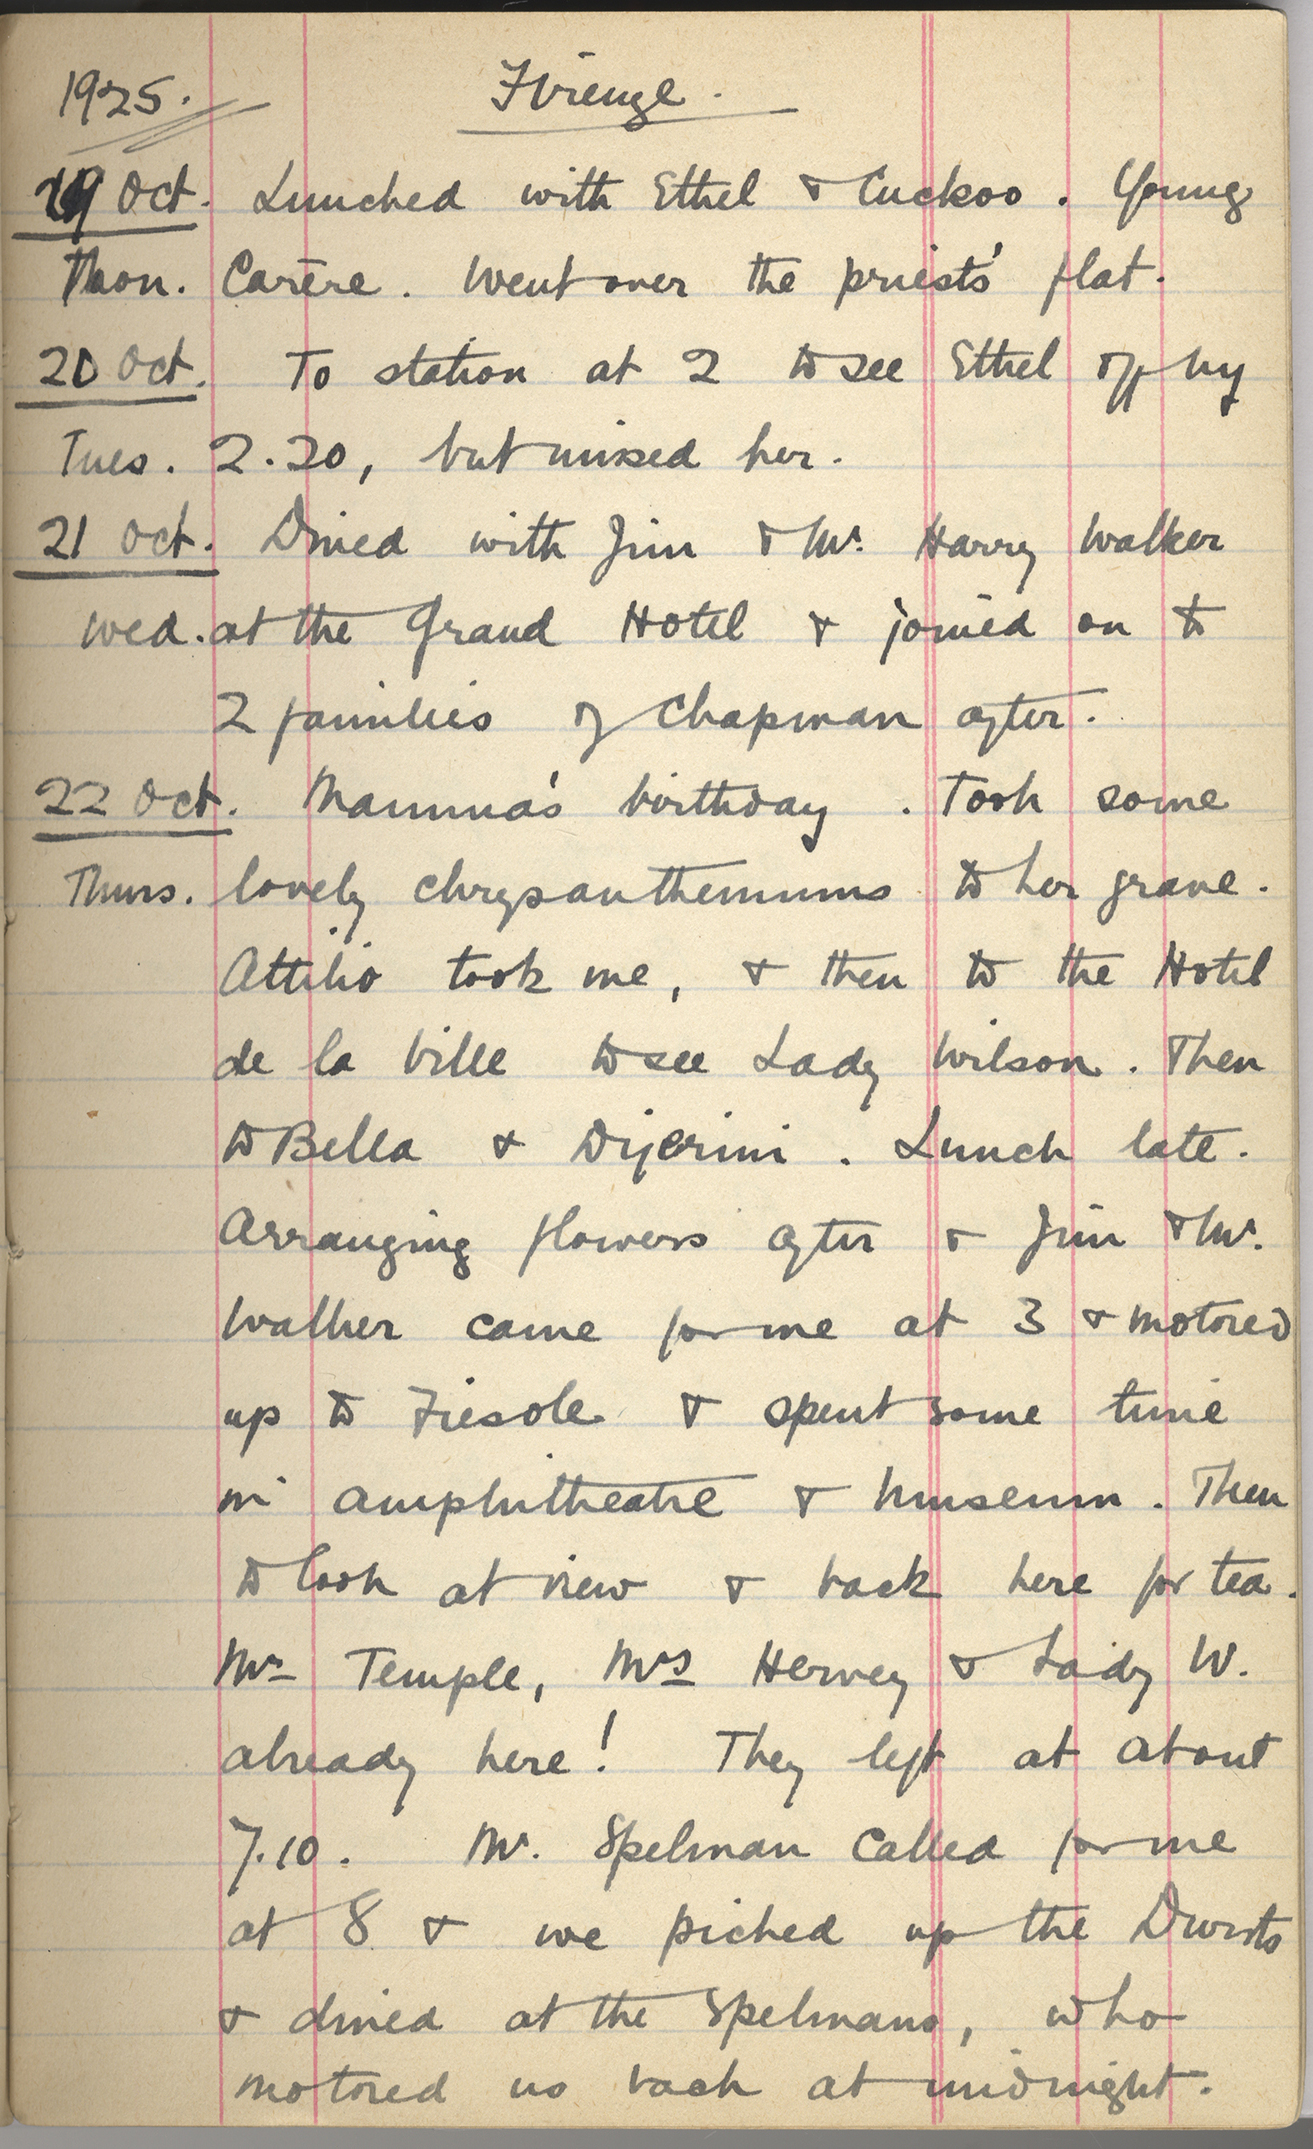 1925. Firenze.
19 Oct. Lunched with Ethel & Cuckoo. Young
Mon. Carère. Went over the priests' flat.
20 Oct. To station at 2 to see Ethel off by
Tues. 2.20, but missed her.
21 Oct. Dined with Jim & Mr. Harry Walker
Wed. at the Grand Hotel & joined on to
2 families of Chapman after.
22 Oct. Mamma's birthday. Took some
Thurs. lovely chrysanthemums to her grave.
Attilio took me, & then to the Hotel
de la Ville to see Lady Wilson. Then
to Bella & Dijerini. Lunch late.
Arranging flowers after & Jim & Mr.
Walker came for me at 3 & motored
up to Fiesole & spent some time
in amphitheatre & museum. Then
to look at view & back here for tea.
Mr Temple, Mrs Hervey & Lady W.
already here! They left at about
7.10. Mr. Spelman called for me
at 8 & we picked up the
& dined at the Spelmans, who
motored us back at midnight.